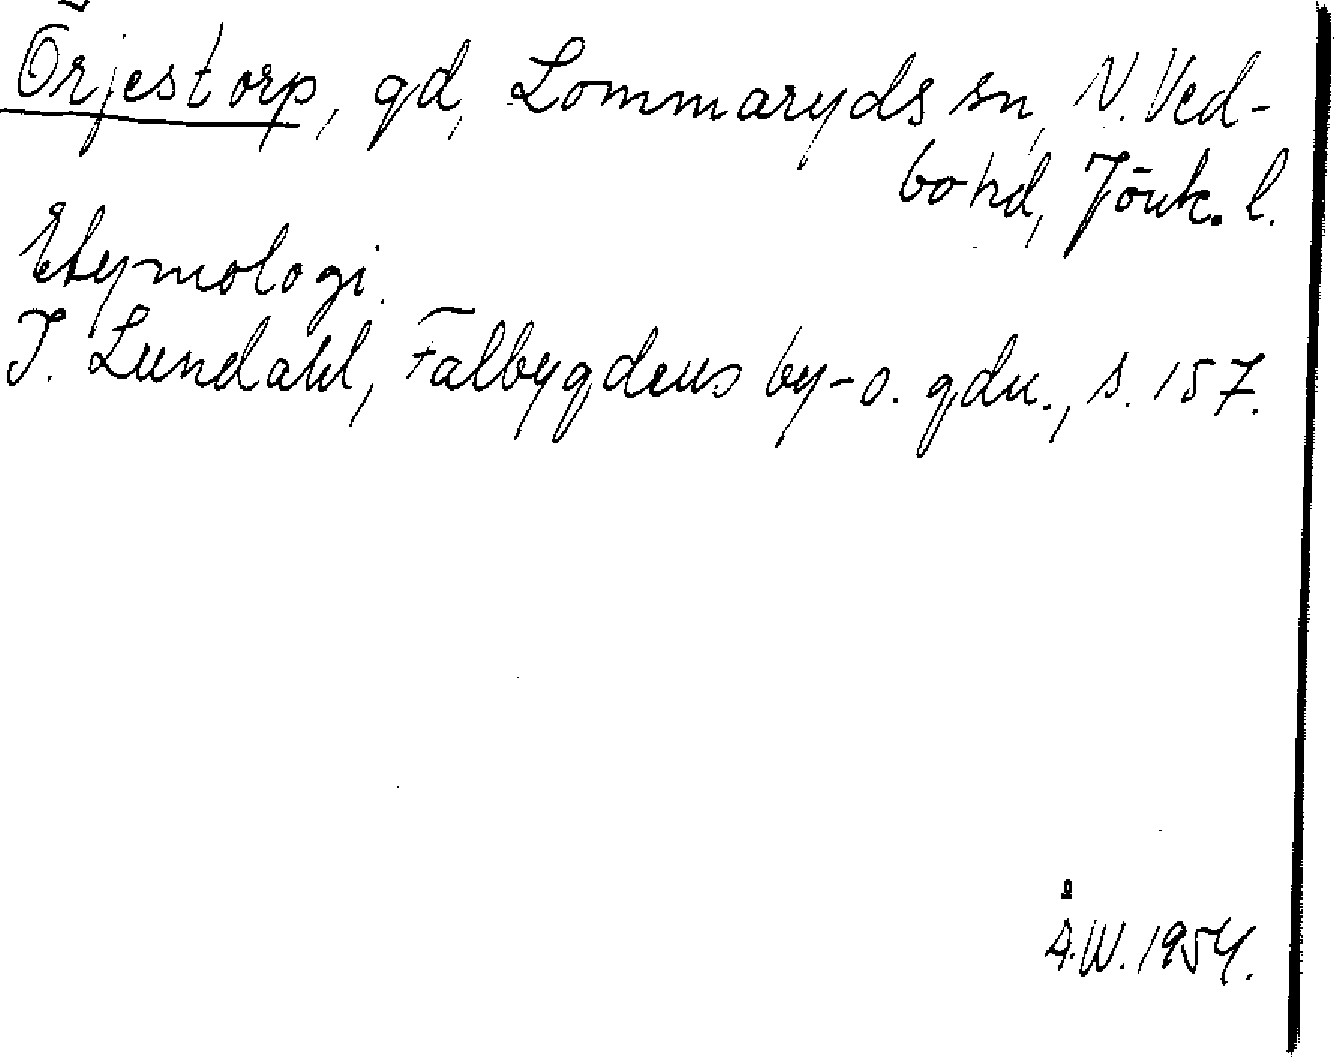 Örjestorp, gd, Lommaryds sn, N. Ved-
bo hd, Jönk. l.
Etymologi.
I. Lundahl, Falbygdens by- o. gdn., s. 157.
Å.W. 1954.